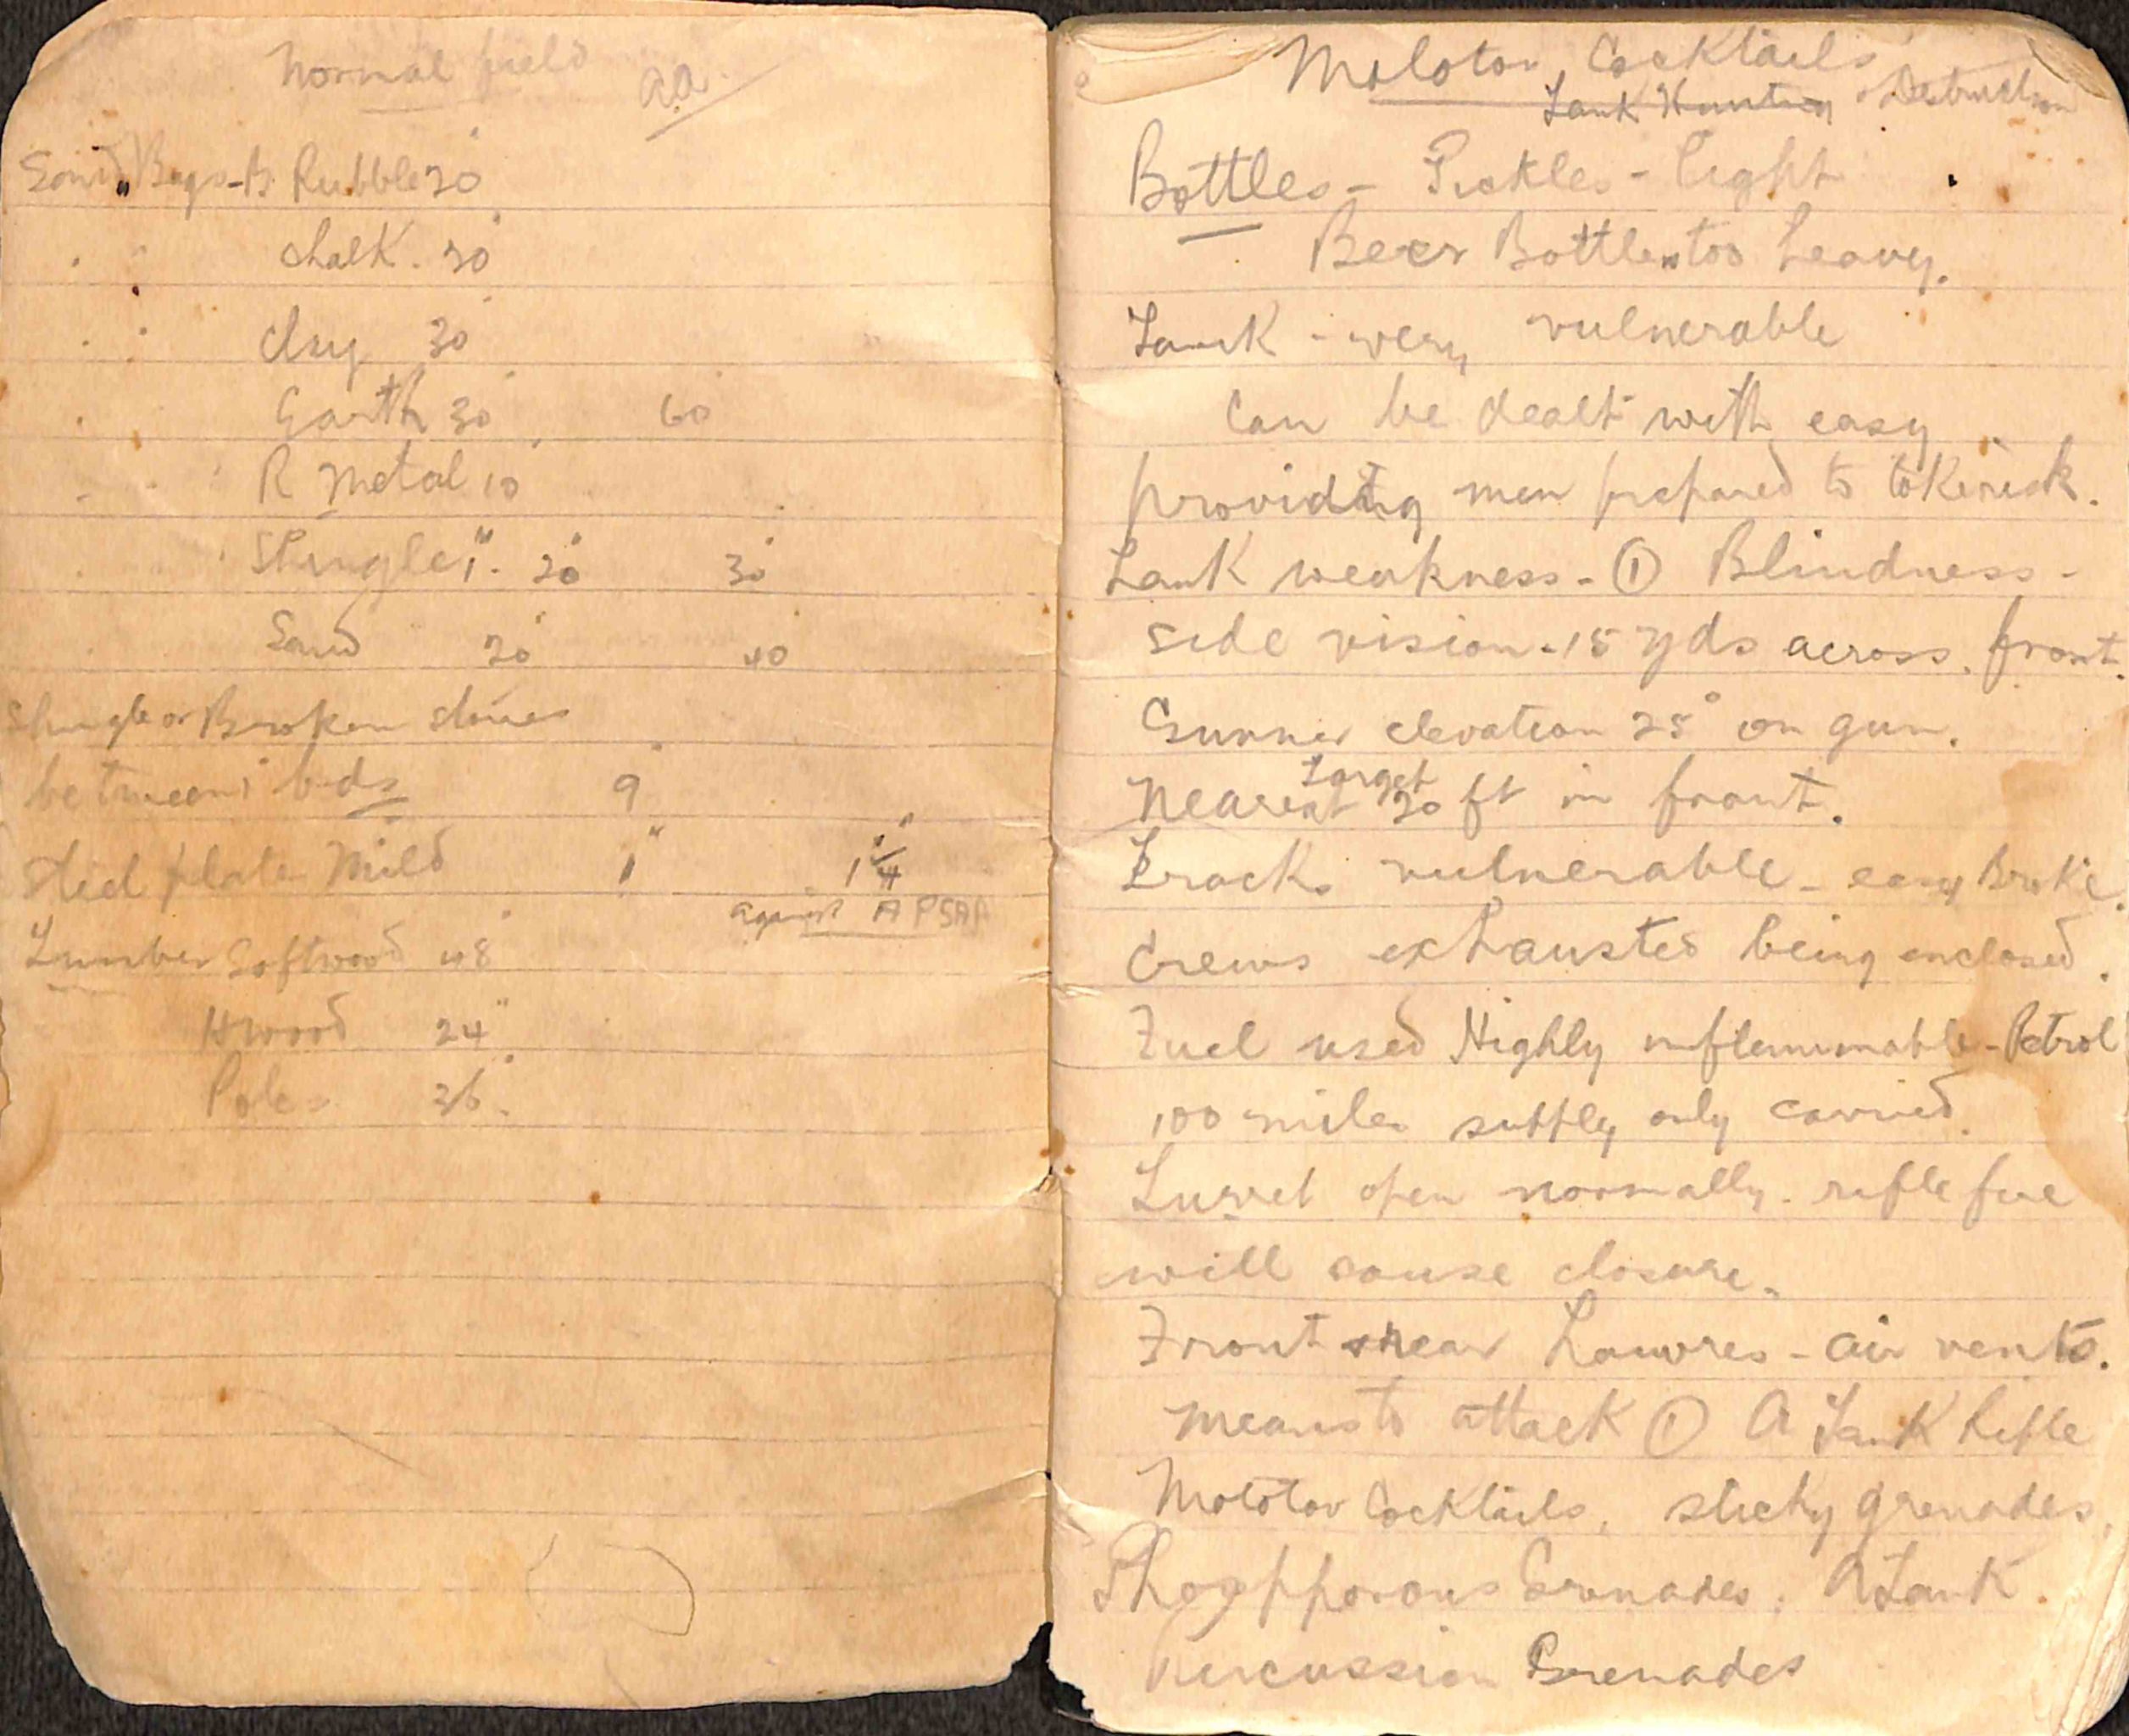 Normal field aa
Sand Bags - B Rubble 20"
" " Chalk. 20"
" " Clay 30"
" Earth 30" 60"
" " R Metal 10"
" Shingle 1". 20" 30"
Sand 20" 40
Shingle or Broken stones
between 1" bds 9"
Steel plate Mild 1" 1 1/4"
against A P SAA
Lumber Softwood 48"
H wood 24"
Poles 36".
Molotov Cocktails
Tank Hunting & Destruction
Bottles - Pickles - light
Beer Bottles too heavy.
Tank - very vulnerable
Can be dealt with easy
providing men prepared to take risk.
Tank weakness - ① Blindness -
side vision - 15 yds across. front.
Gunner elevation 25° on gun.
Nearest Target 20 ft in front.
Tracks vulnerable - easy Broke.
Crews exhausted being enclosed.
Fuel used Highly inflammable - Petrol
100 miles supply only carried.
Turret open normally. rifle fire
will cause closure.
Front & rear Louvres - air vents.
Means to attack ① A Tank Rifle
Molotov Cocktails, sticky grenades,
Phospporous Grenades, A Tank.
Percussion Grenades